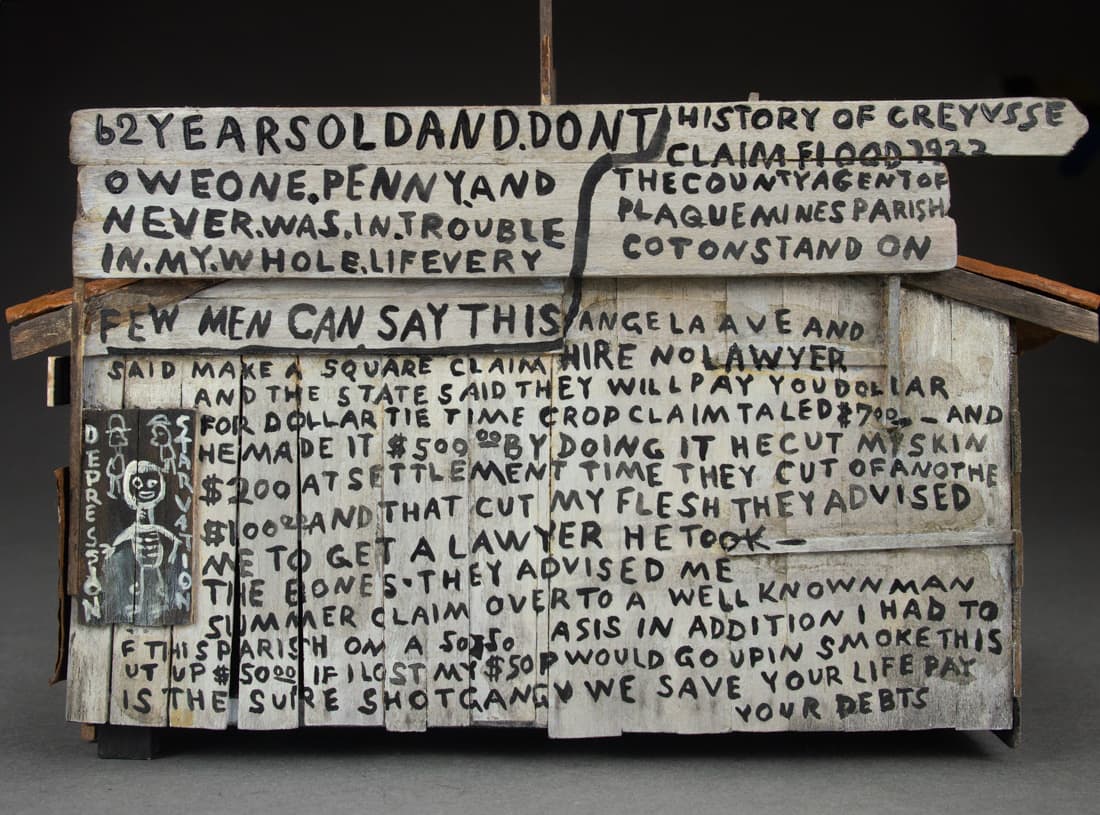 62 YEARS OLD AND. DONT
OWE ONE. PENNY. AND
NEVER. WAS. IN. TROUBLE
IN. MY. WHOLE. LIFE VERY
FEW MEN CAN SAY THIS
HISTORY OF CREYVSSE
CLAIM FLOOD 1922
THE COUNTY AGENT OF
PLAQUEMINES PARISH
COTON STAND ON
ANGELA AVE AND
HIRE NO LAWYER
SAID MAKE A SQUARE CLAIM
AND THE STATE SAID THEY WILL PAY YOU DOLLAR
FOR DOLLAR TIE TIME CROP CLAIM TALED $700 — AND
HE MADE IT $500 00 BY DOING IT HE CUT MY SKIN
$200 AT SETTLEMENT TIME THEY CUT OF ANOTHE
$100 00 AND THAT CUT MY FLESH THEY ADVISED
ME TO GET A LAWYER HE TOOK —
THE BONES. THEY ADVISED ME
SUMMER CLAIM OVER TO A WELL KNOWN MAN
F THIS PARISH ON A 50 50 ASIS IN ADDITION I HAD TO
UT UP $50 00 IF I LOST MY $50 P WOULD GO UP IN SMOKE THIS
IS THE SURE SHOT GANG V WE SAVE YOUR LIFE PAY
YOUR DEBTS
DEPRESSION
STARVATION